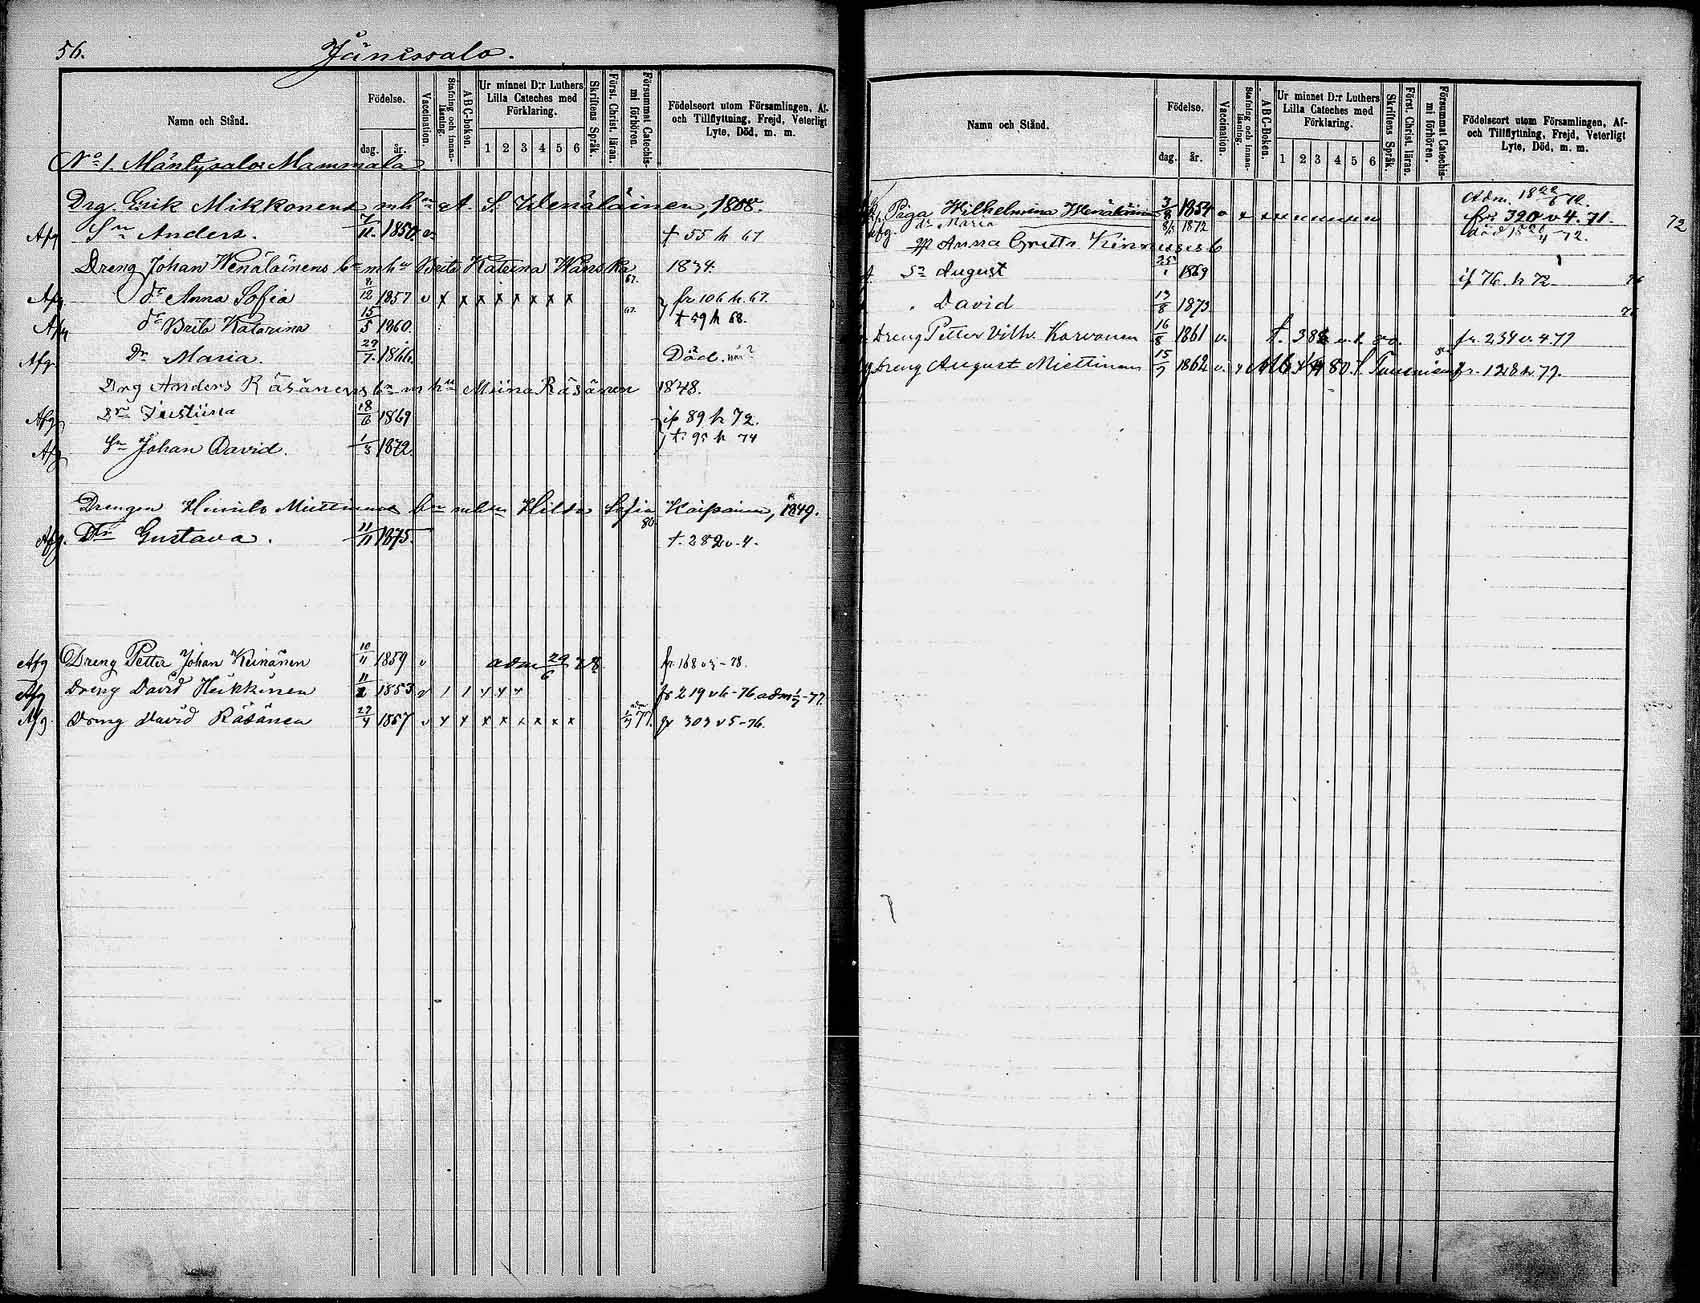 56. Jänissalo.
Namn och Stånd.
Födelse.
dag. år.
Vaccination.
Stafning och innan-läsning.
ABC-boken.
Ur minnet D:r Luthers Lilla Cateches med Förklaring.
1 2 3 4 5 6
Skriftens Språk.
Först. Christ. läran.
Försummat Catechis-mi förhören.
Födelseort utom Församlingen, Af- och Tillflyttning, Frejd, Veterligt Lyte, Död, m. m.
No 1. Mäntysalo Mammala
Drg. Erik Mikkonens mhu A. S. Wenäläinen, 1808.
Afg Sn Anders. 11. 1850. v † 55 h 67
Dreng Johan Wenäläinens bn mhu Brita Katarina Wanska 1834.
67.
Afg. dr Anna Sofia 12 1857 v x x x x x x x x fr 106 h. 67.
Afg dr Brita Katarina 15/5 1860. 67. † 59 h 68.
Afg. Dr Maria. 29/7 1866. Död. när?
Drg Anders Räsänens bn m hu Miina Räsänen 1848.
Afg. Dr Justiina 18/6 1869 ifr 89 h 72.
Afg Sn Johan David. 1/3 1872. † 95 h 74
Drengen Miettinens bn mhu Hilda Sofia Kaipainen, 1849.
80
Afg. Dr Gustava. 11/11 1875. † 282 v. 4.
Afg Dreng Petter Johan Keinänen 10/11 1859 v adm 29/6 78 fr. 168 v 5-78.
Afg Dreng David Heikkinen 11/2 1853 v 1 1 x x x fr 219 v 6-76. adm -77.
Afg. Dreng David Räsänen 27/4 1857 v x x x x x x x x adm 77. fr 303 v 5-76.
Namn och Stånd.
Födelse.
dag. år.
Vaccination.
Stafning och innan-läsning.
ABC-Boken.
Ur minnet D:r Luthers Lilla Cateches med Förklaring.
1 2 3 4 5 6
Skriftens Språk.
Först. Christ. läran.
Försummat Catechis-mi förhören.
Födelseort utom Församlingen, Af- och Tillflyttning, Frejd, Veterligt Lyte, Död, m. m.
Adm. 72.
Piga Wilhelmina Wenäläinen 3/8 1854 v x x x fr 390 v 4. 71. 72
Afg. dr Maria 8/5 1872 död 72.
Anna Greta Kinnunens b
Sn August 25/1 1869 if 76. h 72 76
" David 19/8 1873 76
Dreng Petter Vilh. Karvonen 16/8 1861 v. fr. 234 v. 4. 77
Dreng August Miettinen 15/7 1862 v. fr. 128 h. 77.